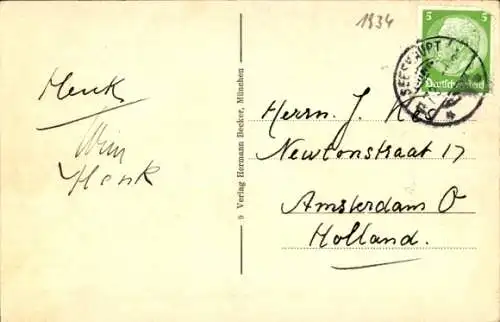 1934
5 5
Deutsches Reich
SEESHAUPT
Henk
Wim
Henk
9 Verlag Hermann Becker, München
Herrn. J. K
Newtonstraat 17
Amsterdam O
Holland.